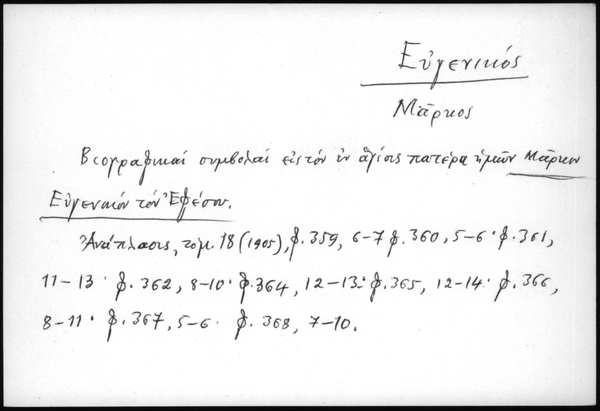 Εὐγενικός
Μᾶρκος
Βιογραφικαὶ συμβολαὶ εἰς τὸν ἐν ἁγίοις πατέρα ἡμῶν Μᾶρκον
Εὐγενικὸν τὸν Ἐφέσου.
Ἀνάπλασις, τομ. 18 (1905), φ. 359, 6-7 φ. 360, 5-6· φ. 361,
11-13· φ. 362, 8-10· φ. 364, 12-13· φ. 365, 12-14· φ. 366,
8-11· φ. 367, 5-6· φ. 368, 7-10.